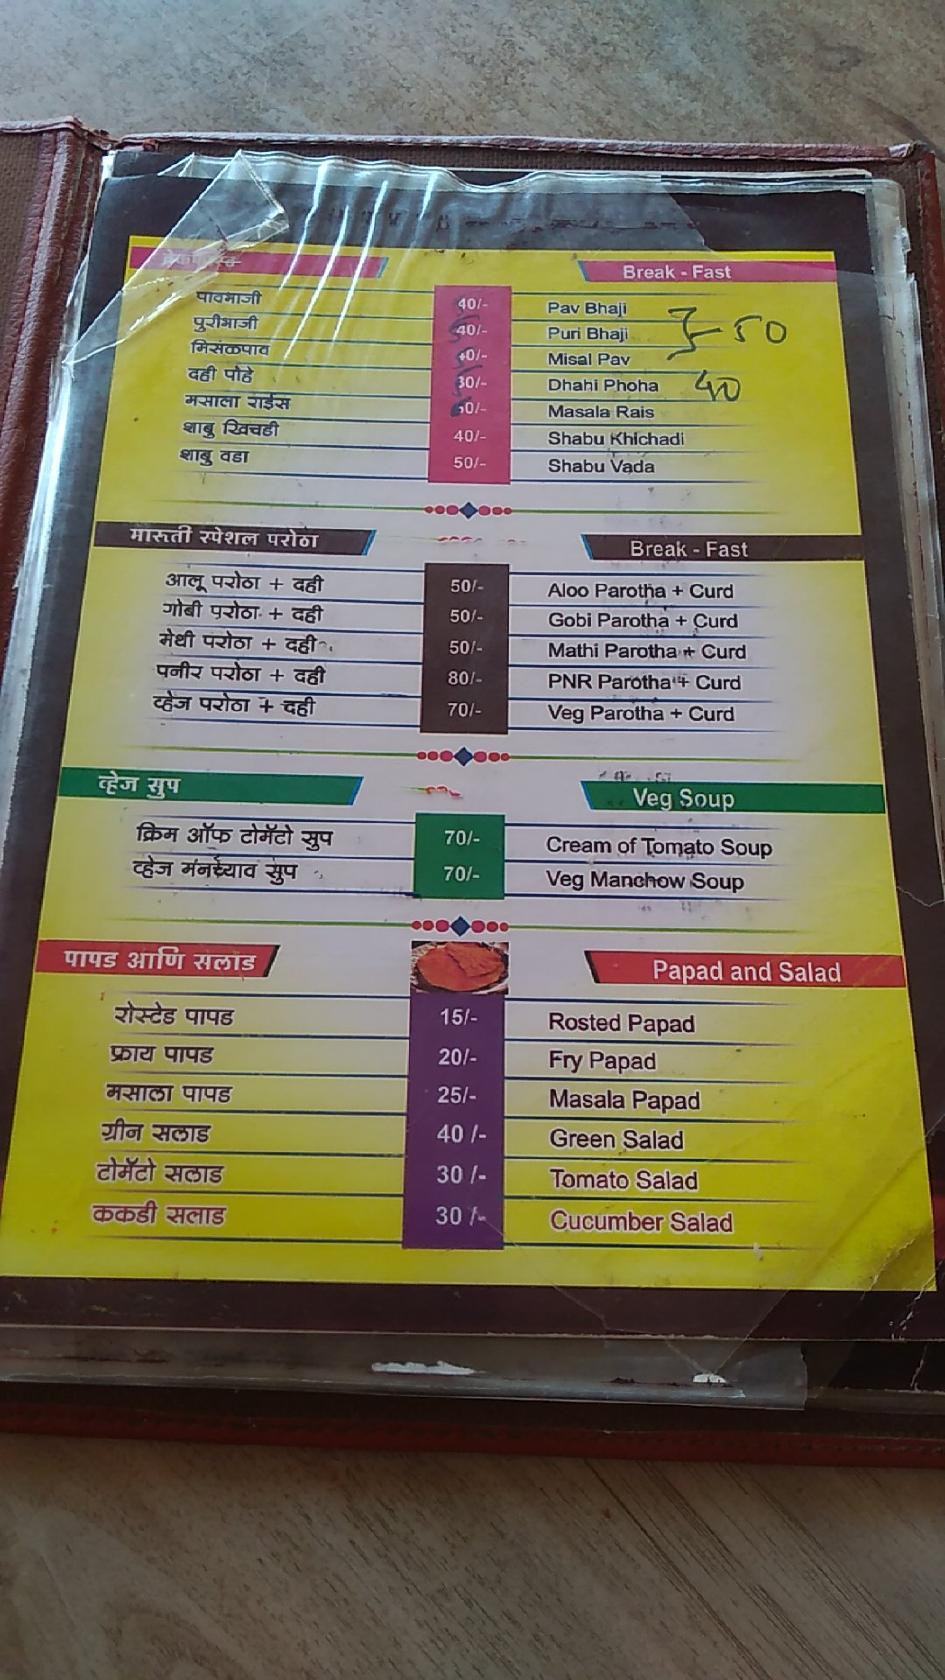 ब्रेकफास्ट Break - Fast
पावभाजी 40/- Pav Bhaji
पुरीभाजी 40/- Puri Bhaji } - 50
मिसळपाव 40/- Misal Pav
दही पोहे 30/- Dhahi Phoha 40
मसाला राईस Masala Rais
शाबु खिचडी 40/- Shabu Khichadi
शाबु वडा 50/- Shabu Vada
मारुती स्पेशल परोठा Break - Fast
आलू परोठा + दही 50/- Aloo Parotha + Curd
गोबी परोठा + दही 50/- Gobi Parotha + Curd
मेथी परोठा + दही 50/- Mathi Parotha + Curd
पनीर परोठा + दही 80/- PNR Parotha + Curd
व्हेज परोठा + दही 70/- Veg Parotha + Curd
व्हेज सुप Veg Soup
क्रिम ऑफ टोमॅटो सुप 70/- Cream of Tomato Soup
व्हेज मंनच्याव सुप 70/- Veg Manchow Soup
पापड आणि सलाड Papad and Salad
रोस्टेड पापड 15/- Rosted Papad
फ्राय पापड 20/- Fry Papad
मसाला पापड 25/- Masala Papad
ग्रीन सलाड 40 /- Green Salad
टोमॅटो सलाड 30 /- Tomato Salad
ककडी सलाड 30 /- Cucumber Salad